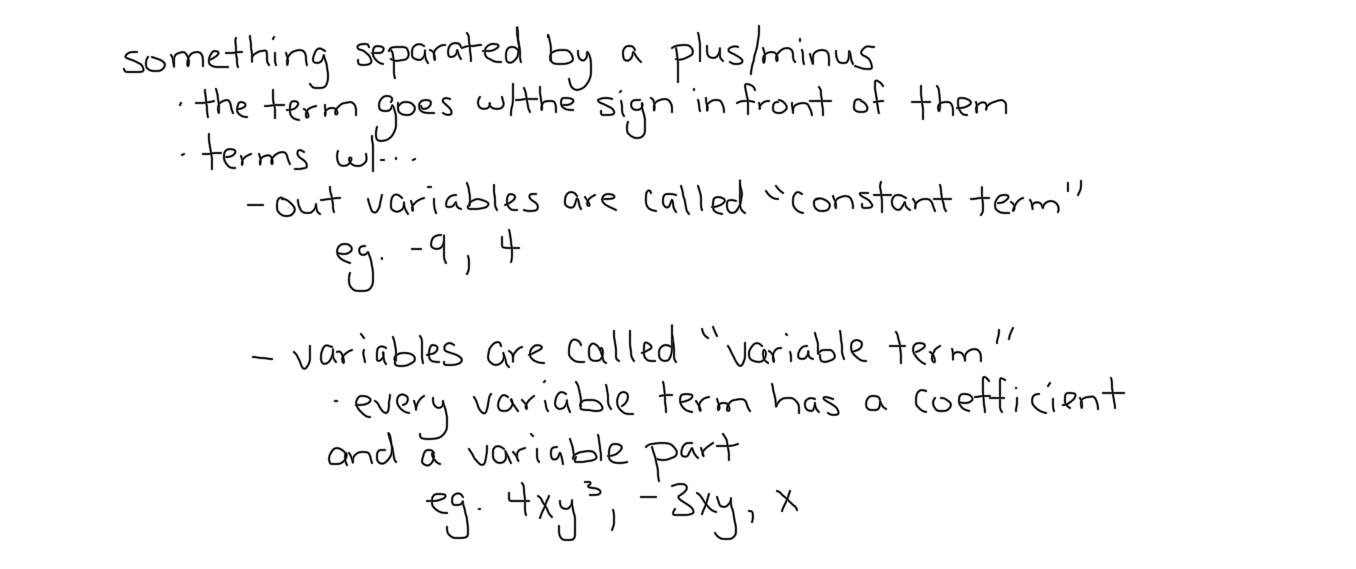 something separated by a plus/minus
· the term goes w/the sign in front of them
· terms w/...
- out variables are called "constant term"
eg. -9, 4
- variables are called "variable term"
· every variable term has a coefficient
and a variable part
eg. 4xy³, -3xy, x